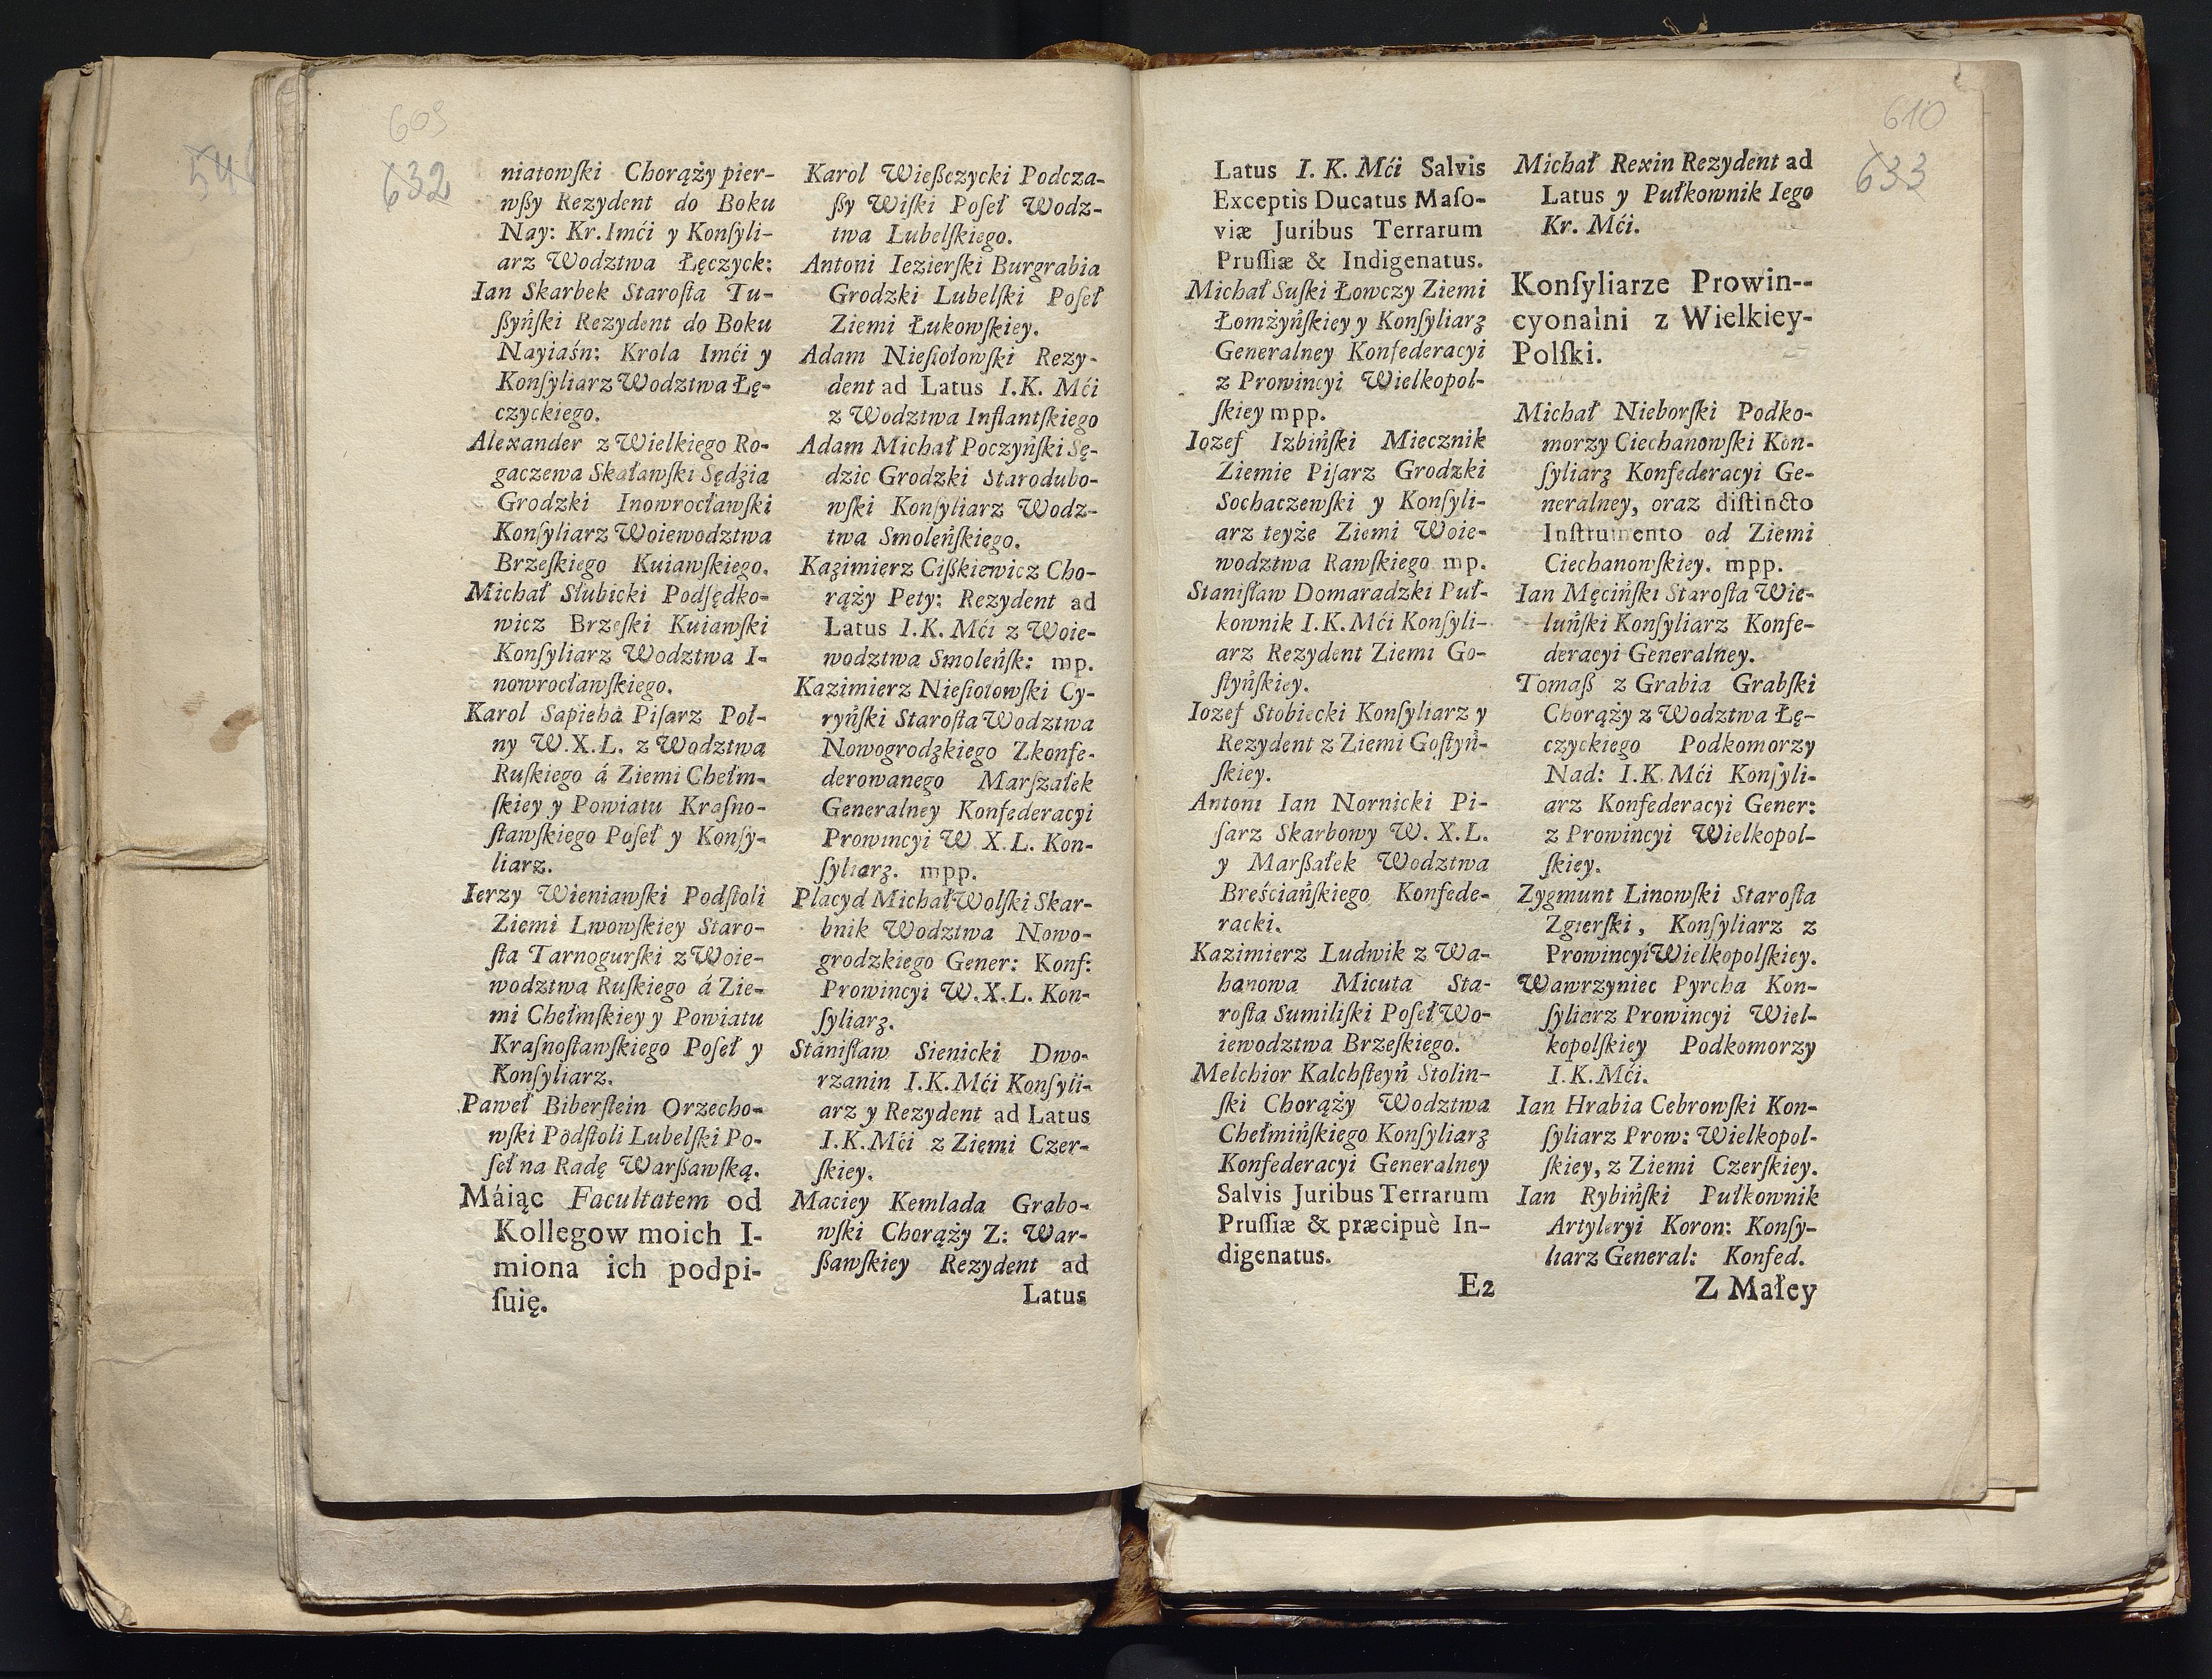 609
632
niatowſki Chorąży pier-
wßy Rezydent do Boku
Nay: Kr. Imći y Konſyli-
arz Wodztwa Łęczyck:
Ian Skarbek Staroſta Tu-
ßyńſki Rezydent do Boku
Nayiaśn: Krola Imći y
Konſyliarz Wodztwa Łę-
czyckiego.
Alexander z Wielkiego Ro-
gaczewa Skaławſki Sędzia
Grodzki Inowrocławſki
Konſyliarz Woiewodztwa
Brzeſkiego Kuiawſkiego.
Michał Słubicki Podſędko-
wicz Brzeſki Kuiawſki
Konſyliarz Wodztwa I-
nowrocławſkiego.
Karol Sapieha Piſarz Pol-
ny W.X.L. z Wodztwa
Ruſkiego á Ziemi Chełm-
ſkiey y Powiatu Kraſno-
ſtawſkiego Poſeł y Konſy-
liarz.
Ierzy Wieniawſki Podſtoli
Ziemi Lwowſkiey Staro-
ſta Tarnogurſki z Woie-
wodztwa Ruſkiego á Zie-
mi Chełmſkiey y Powiatu
Kraſnoſtawſkiego Poſeł y
Konſyliarz.
Paweł Biberſtein Orzecho-
wſki Podſtoli Lubelſki Po-
ſeł na Radę Warßawſką.
Máiąc Facultatem od
Kollegow moich I-
miona ich podpi-
ſuię.
Karol Wießczycki Podcza-
ßy Wiſki Poſeł Wodz-
twa Lubelſkiego.
Antoni Iezierſki Burgrabia
Grodzki Lubelſki Poſeł
Ziemi Łukowſkiey.
Adam Nieſiołowſki Rezy-
dent ad Latus I.K. Mći
z Wodztwa Inflantſkiego
Adam Michał Poczyńſki Sę-
dzic Grodzki Starodubo-
wſki Konſyliarz Wodz-
twa Smoleńſkiego.
Kazimierz Cißkiewicz Cho-
rąży Pety: Rezydent ad
Latus I.K. Mći z Woie-
wodztwa Smoleńſk: mp.
Kazimierz Nieſiołowſki Cy-
ryńſki Staroſta Wodztwa
Nowogrodzkiego Zkonfe-
derowanego Marſzałek
Generalney Konfederacyi
Prowincyi W. X. L. Kon-
ſyliarz. mpp.
Placyd Michał Wolſki Skar-
bnik Wodztwa Nowo-
grodzkiego Gener: Konf:
Prowincyi W.X.L. Kon-
ſyliarz.
Staniſław Sienicki Dwo-
rzanin I.K.Mći Konſyli-
arz y Rezydent ad Latus
I.K.Mći z Ziemi Czer-
ſkiey.
Maciey Kemlada Grabo-
wſki Chorąży Z: War-
ßawſkiey Rezydent ad
Latus
610
633
Latus I. K. Mći Salvis
Exceptis Ducatus Maſo-
viæ Juribus Terrarum
Pruſſiæ & Indigenatus.
Michał Suſki Łowczy Ziemi
Łomżyńſkiey y Konſyliarz
Generalney Konfederacyi
z Prowincyi Wielkopol-
ſkiey mpp.
Iozef Izbińſki Miecznik
Ziemie Piſarz Grodzki
Sochaczewſki y Konſyli-
arz teyże Ziemi Woie-
wodztwa Rawſkiego mp.
Staniſław Domaradzki Puł-
kownik I.K.Mći Konſyli-
arz Rezydent Ziemi Go-
ſtyńſkiey.
Iozef Stobiecki Konſyliarz y
Rezydent z Ziemi Goſtyń-
ſkiey.
Antoni Ian Nornicki Pi-
ſarz Skarbowy W. X. L.
y Marßałek Wodztwa
Breściańſkiego Konfede-
racki.
Kazimierz Ludwik z Wa-
hanowa Micuta Sta-
roſta Sumiliſki Poſeł Wo-
iewodztwa Brzeſkiego.
Melchior Kalchſteyń Stolin-
ſki Chorąży Wodztwa
Chełmińſkiego Konſyliarz
Konfederacyi Generalney
Salvis Juribus Terrarum
Pruſſiæ & præcipuè In-
digenatus.
E2
Michał Rexin Rezydent ad
Latus y Pułkownik Iego
Kr. Mći.
Konſyliarze Prowin--
cyonalni z Wielkiey-
Polſki.
Michał Nieborſki Podko-
morzy Ciechanowſki Kon-
ſyliarz Konfederacyi Ge-
neralney, oraz diſtincto
Inſtrumento od Ziemi
Ciechanowſkiey. mpp.
Ian Męcińſki Staroſta Wie-
luńſki Konſyliarz Konfe-
deracyi Generalney.
Tomaß z Grabia Grabſki
Chorąży z Wodztwa Łę-
czyckiego Podkomorzy
Nad: I.K.Mći Konſyli-
arz Konfederacyi Gener:
z Prowincyi Wielkopol-
ſkiey.
Zygmunt Linowſki Staroſta
Zgierſki, Konſyliarz z
Prowincyi Wielkopolſkiey.
Wawrzyniec Pyrcha Kon-
ſyliarz Prowincyi Wiel-
kopolſkiey Podkomorzy
I.K.Mći.
Ian Hrabia Cebrowſki Kon-
ſyliarz Prow: Wielkopol-
ſkiey, z Ziemi Czerſkiey.
Ian Rybińſki Pułkownik
Artyleryi Koron: Konſy-
liarz General: Konfed.
Z Małey